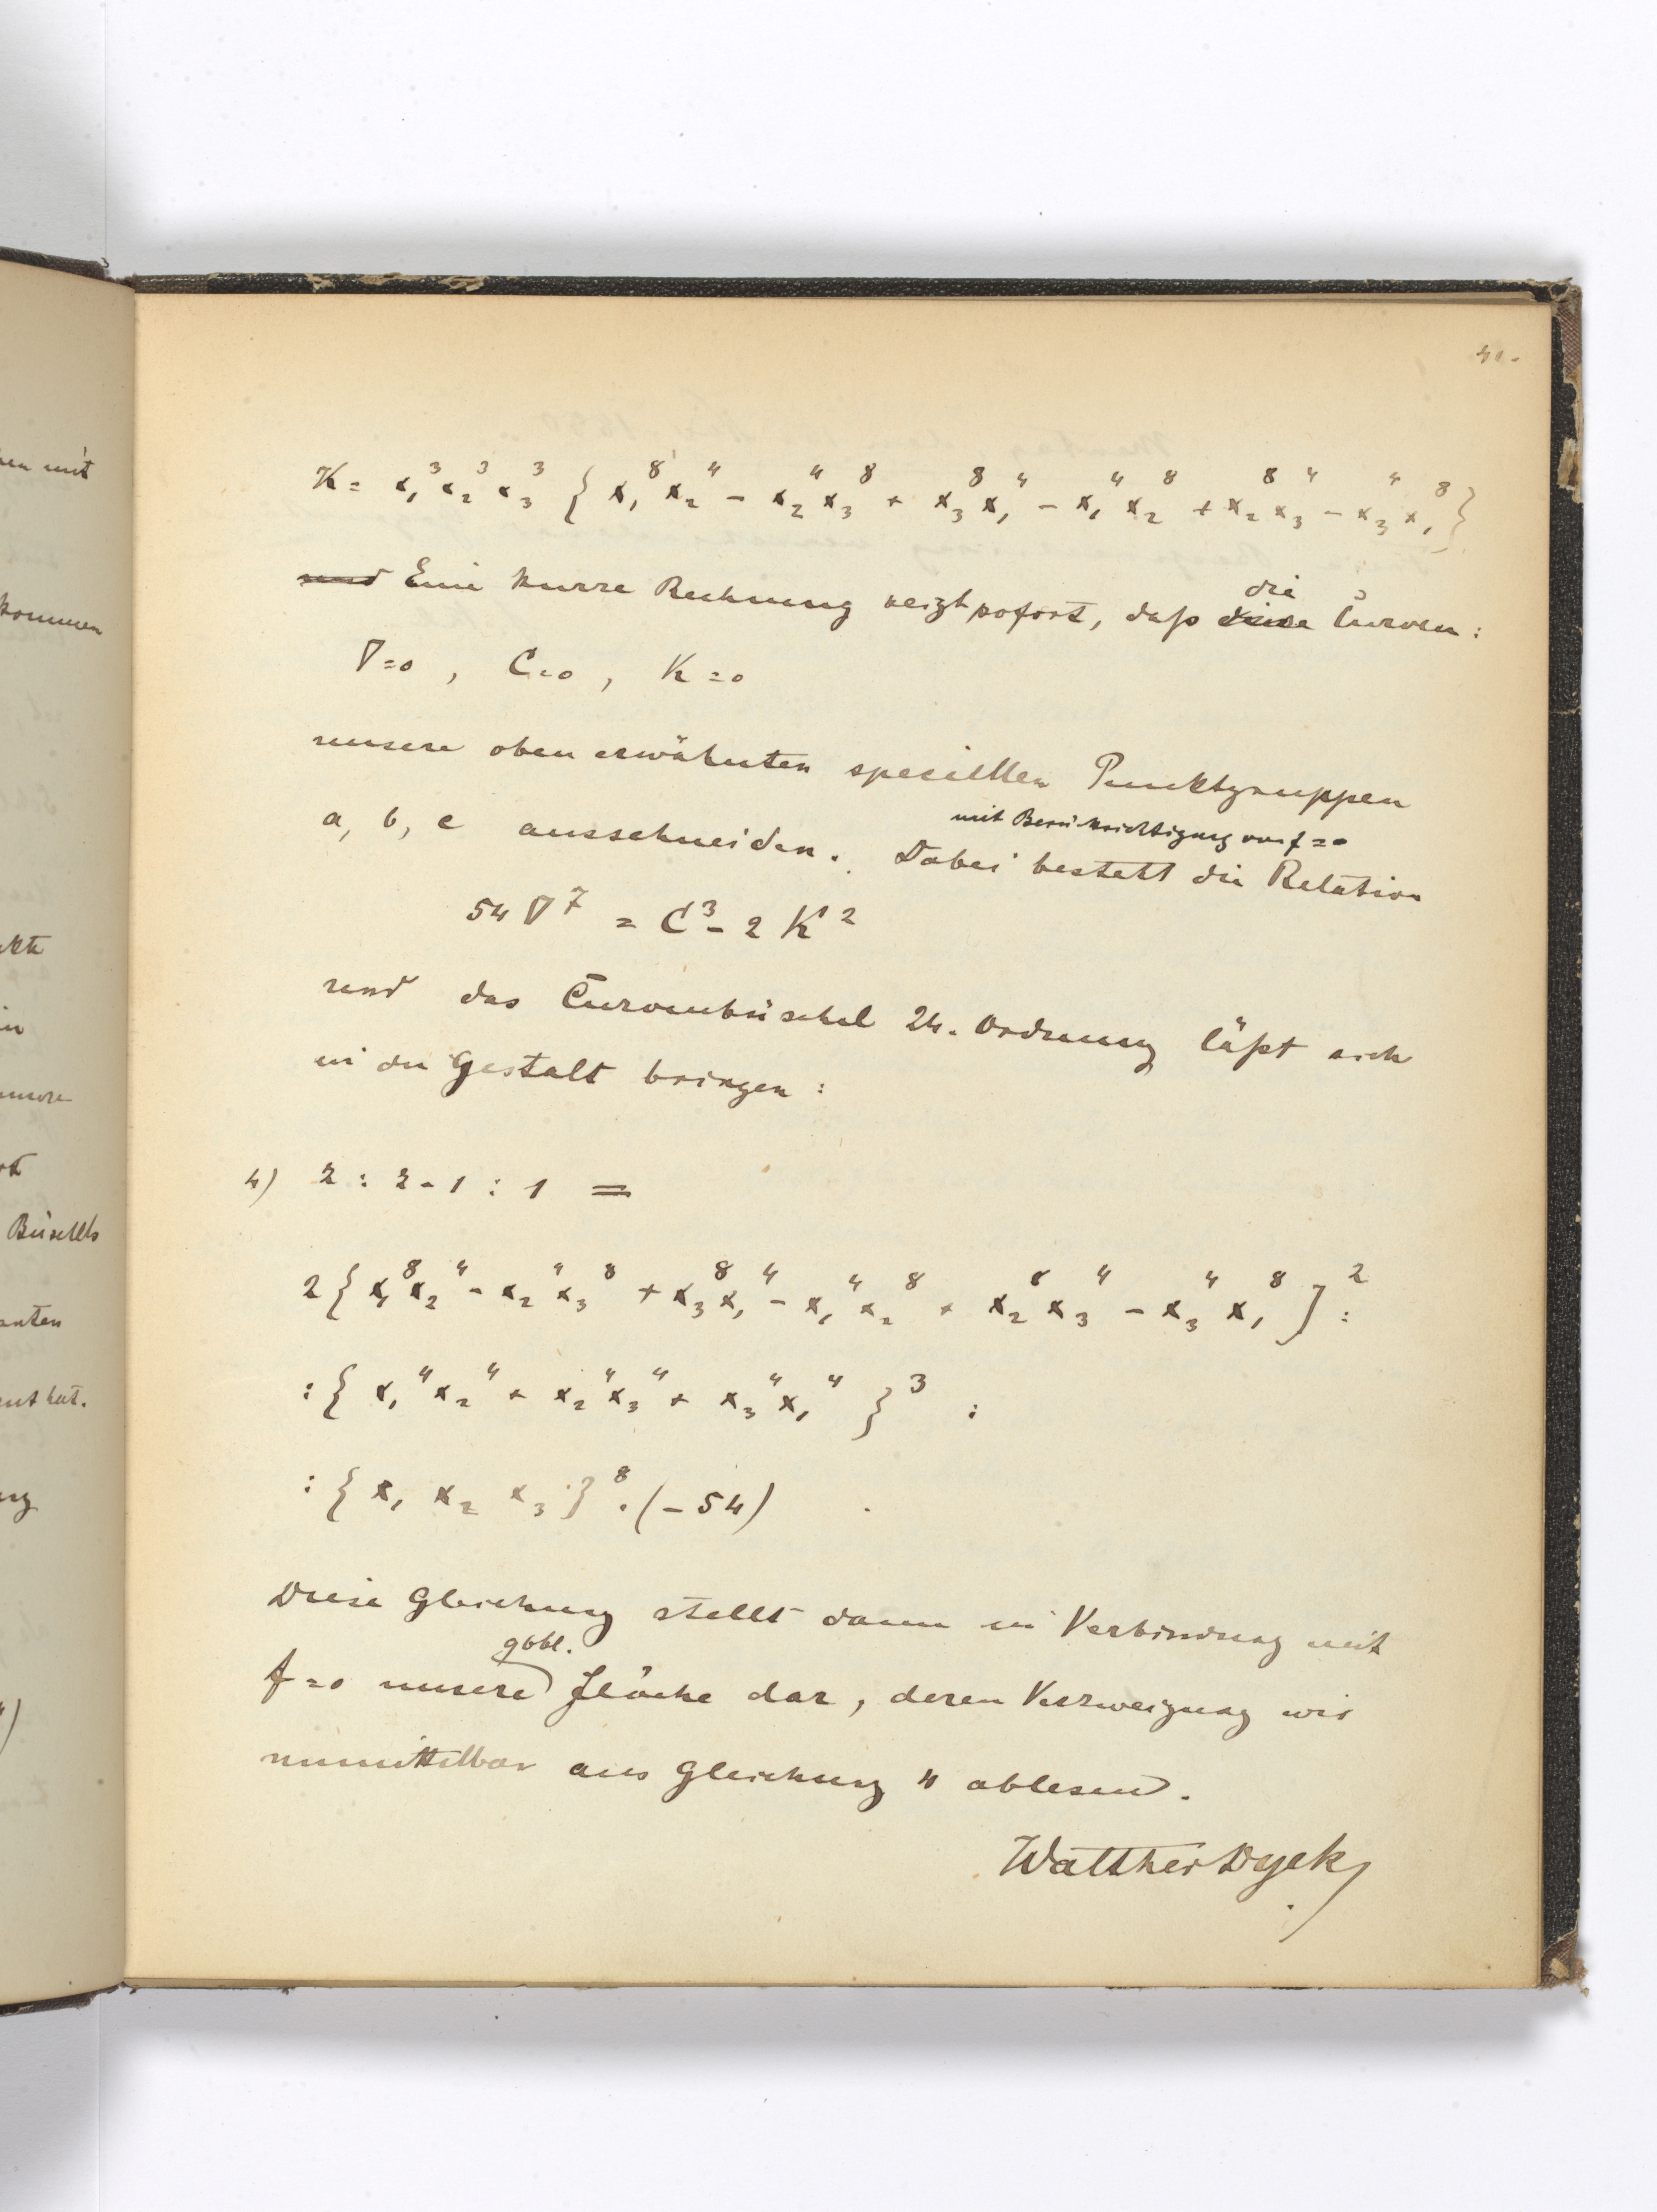 41.
K = x₁³ x₂³ x₃³ { x₁⁸ x₂⁴ - x₂⁴ x₃⁸ + x₃⁸ x₁⁴ - x₁⁴ x₂⁸ + x₂⁸ x₃⁴ - x₃⁴ x₁⁸ }
und Eine kurze Rechnung zeigt sofort, daß die Curven:
∇=0, C=0, K=0
unsere oben erwähnten speciellen Punktgruppen
a, b, c ausschneiden. Dabei besteht mit Berücksichtigung von f=0 die Relation
54 ∇⁷ = C³ - 2 K²
und das Curvenbüschel 24. Ordnung läßt sich
in die Gestalt bringen:
4) z : z-1 : 1 =
2 { x₁⁸ x₂⁴ - x₂⁴ x₃⁸ + x₃⁸ x₁⁴ - x₁⁴ x₂⁸ + x₂⁸ x₃⁴ - x₃⁴ x₁⁸ }² :
: { x₁⁴ x₂⁴ + x₂⁴ x₃⁴ + x₃⁴ x₁⁴ }³ :
: { x₁ x₂ x₃ }⁸ . (-54)
Diese Gleichung stellt dann in Verbindung mit
f=0 unsere ggbl. Fläche dar, deren Verzweigung wir
unmittelbar aus Gleichung 4 ablesen.
Walther Dyck
en mit
kommen
Büschels
hat.